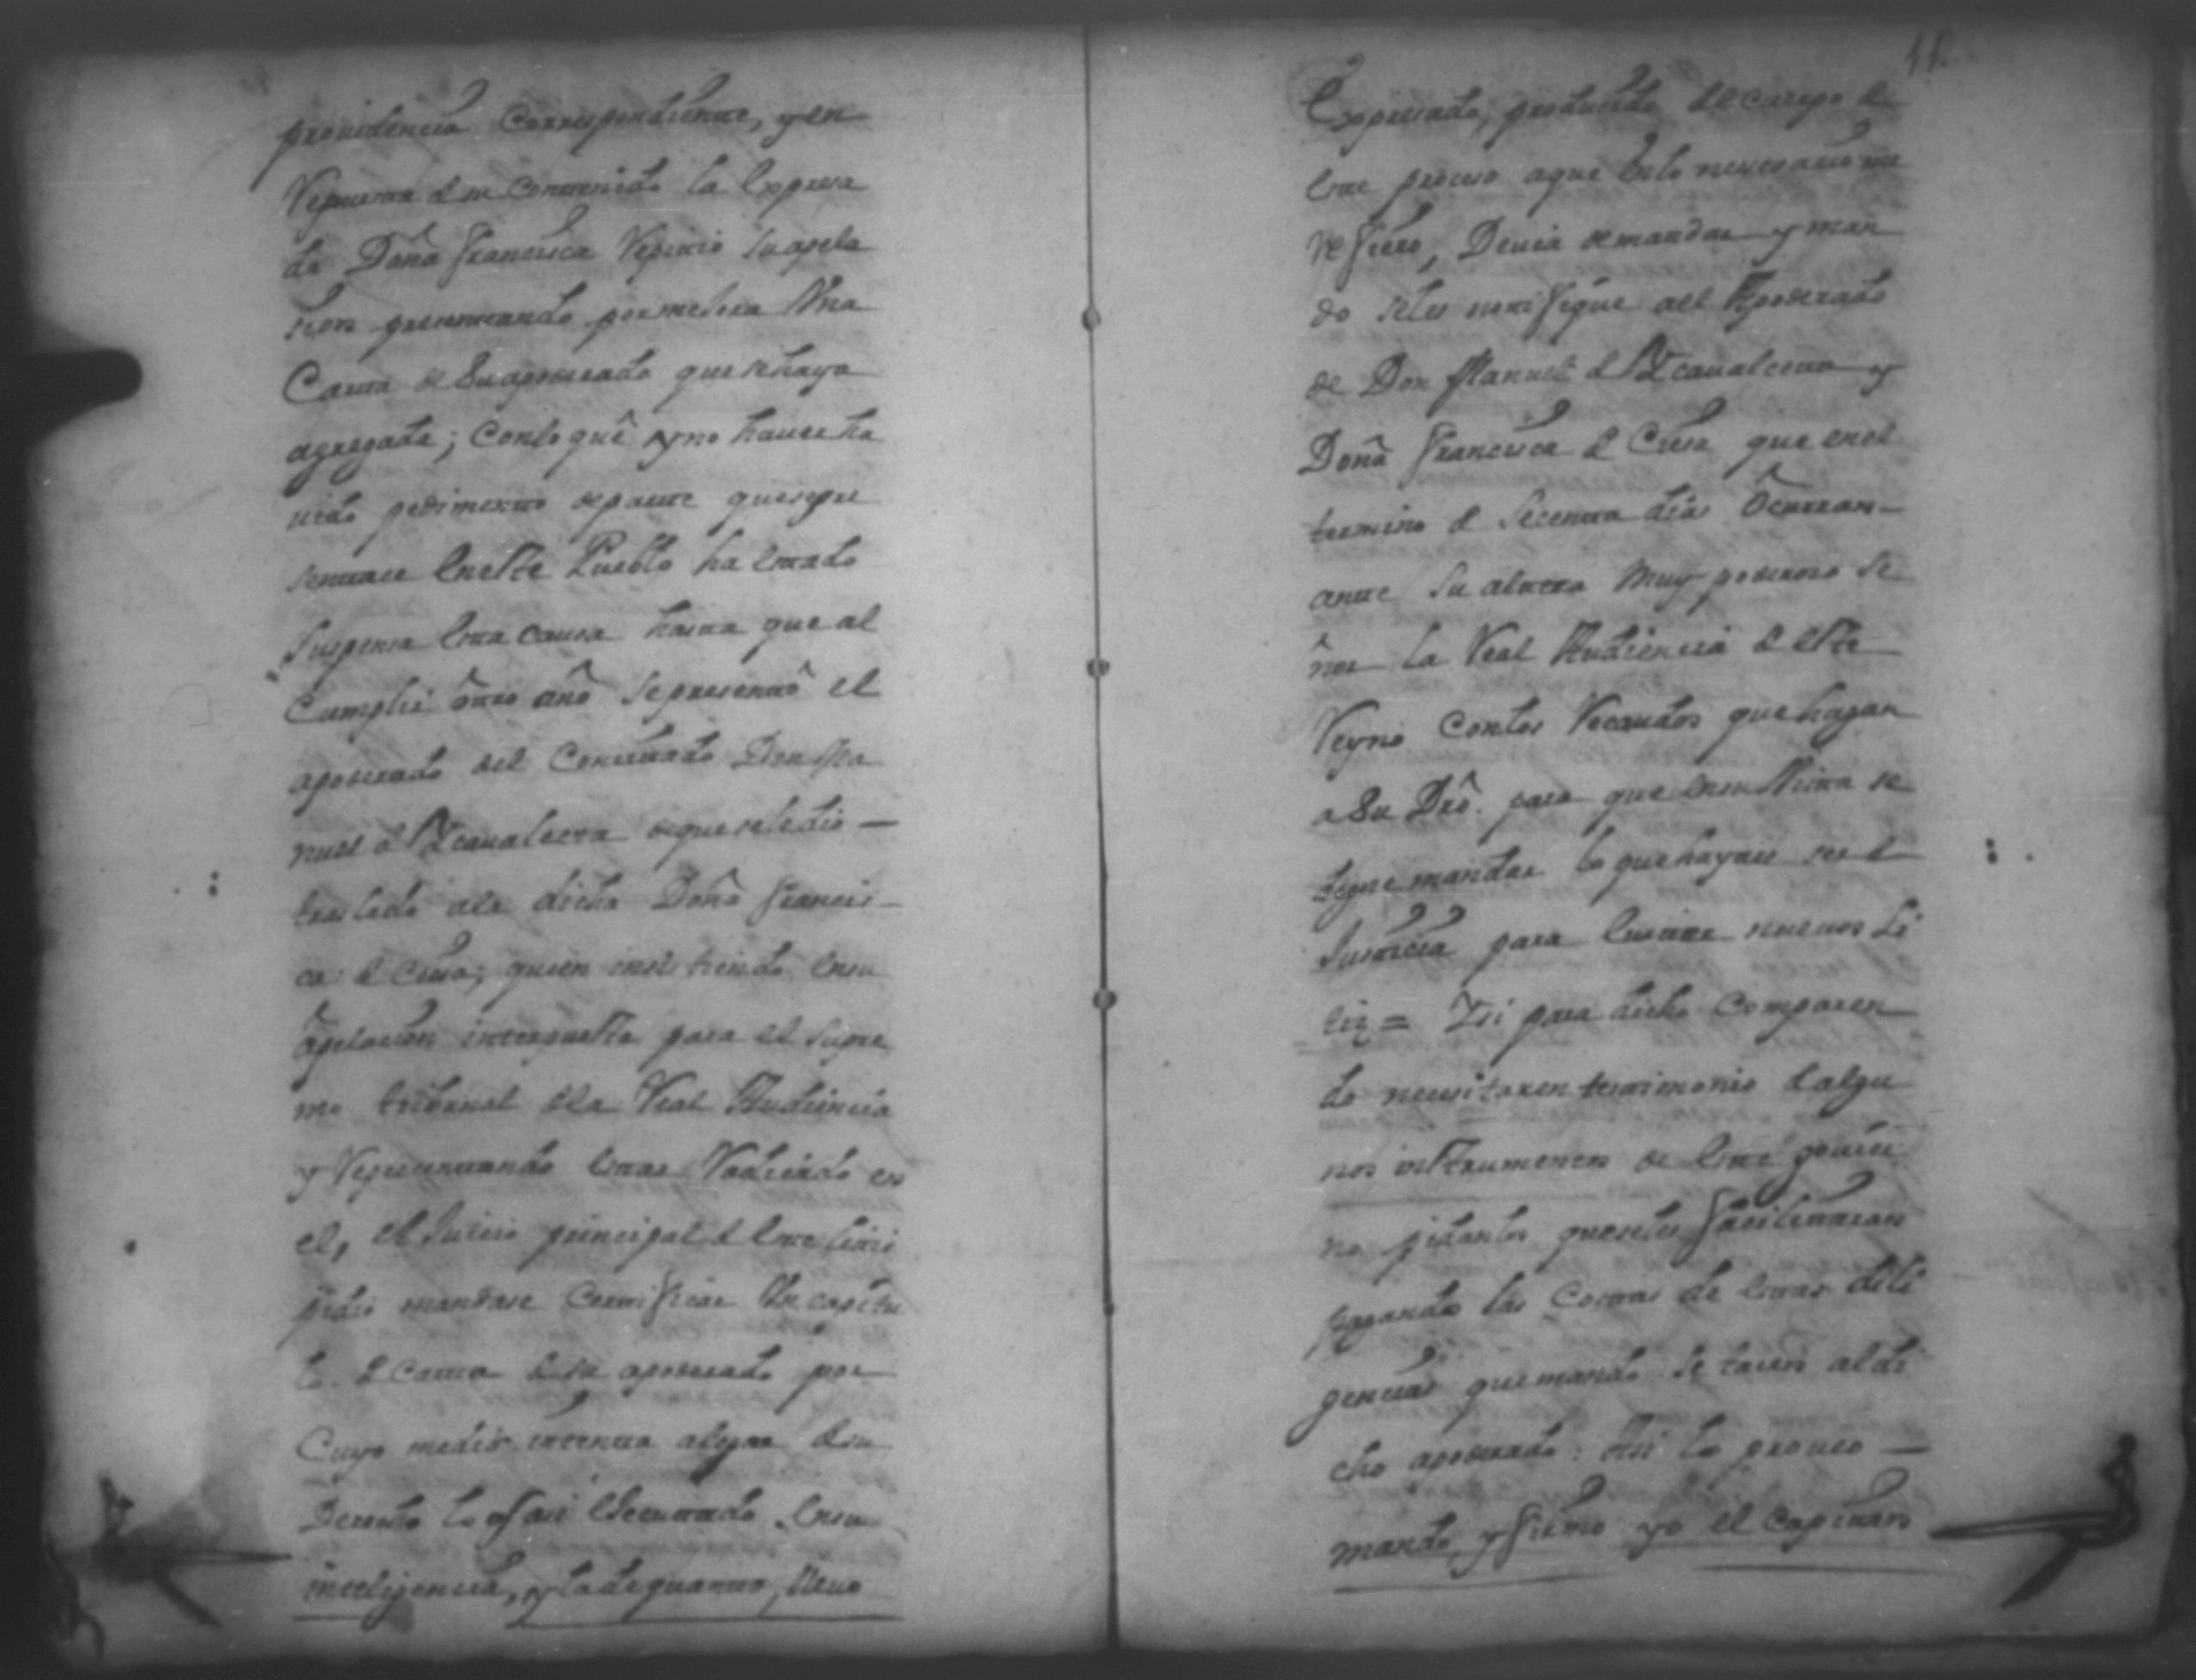 providencia correspondiente, y en
Repuesta de su contenido la expresa
da Doña Francisca Repitio su apela
cion presentando por mejora Una
Carta de Su apoderado que se haya
agregada; Con lo que y no haver ha
vido pedimento de parte que repre
sentase en este Pueblo ha estado
Suspensa esta causa hasta que al
Cumplir otro año se presentó el
apoderado del Don Ma
nuel de Azcaualceta de que se le dio
traslado a la dicha Doña Francis
ca de insistiendo en su
apelacion interpuesta para el supre
mo tribunal de la Real Audiencia
y Representando estar Radicado en
el, el Juicio principal de este litis
pidio mandase Certificar Un capitu
lo de Carta de su apoderado por
Cuyo medio intenta alegar de su
Derecho lo asi Executado En su
inteligencia, y la de quanto, lleuo
11
Expresado, producido del cuerpo de
este proceso a que en lo necesario me
refiero, Deuia de mandar y man
do se les notifique al Apoderado
de Don Manuel de Azcaualceta y
Doña Francisca de que en el
termino de Secenta dias Ocurran
ante Su alteza muy poderoso Se
ñor la Real Audiencia de este
Reyno Con los Recaudos que hagan
a Su Dro. para que en su Vista se
digne mandar lo que hayase ser de
Justicia para Euitar nuevos Li
tiz = Y si para dicho Comparen
do necesitaren testimonio de algu
nos instrumentos de este
no pidanlos que se les facilitaran
pagando las Costas de estas dili
gencias que mando se tacen al di
cho apoderado: Asi lo proueo
mando y firmo yo el Capitan